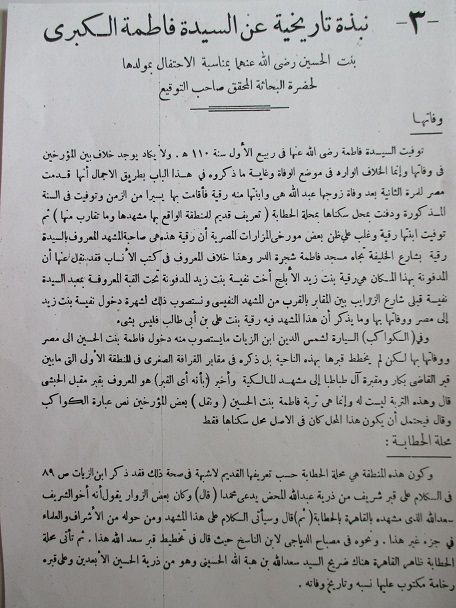 -٣- نبذة تاريخية عن السيدة فاطمة الكبرى
بنت الحسين رضى الله عنهما بمناسبة الاحتفال بمولدها
لحضرة البحاثة المحقق صاحب التوقيع
وفاتها
توفيت السيدة فاطمة رضى الله عنها فى ربيع الأول سنة ١١٠ هـ . ولا يكاد يوجد خلاف بين المؤرخين
فى وفاتها وإنما الخلاف الوارد فى موضع الوفاة وغاية ما ذكروه فى هذا الباب بطريق الاجمال أنها قدمت
مصر للمرة الثانية بعد وفاة زوجها عبد الله هى وابنتها منه رقية فأقامت بها يسيرا من الزمن وتوفيت فى السنة
المذكورة ودفنت بمحل سكناها بمحلة الحطابة ( تعريف قديم للمنطقة الواقع بها مشهدها وما تقارب منها ) ثم
توفيت ابنتها رقية وغلب على ظن بعض مورخى المزارات المصرية أن رقية هذه هى صاحبة المشهد المعروف بالسيدة
رقية بشارع الخليفة تجاه مسجد فاطمة شجرة الدر وهذا خلاف المعروف فى كتب الأنساب فقد نقل عنها أن
المدفونة بهذا المكان هى رقية بنت زيد الأبلج أخت نفيسة بنت زيد المدفونة تحت القبة المعروفة بمعبد السيدة
نفيسة قبلى شارع الزرايب بين المقابر بالقرب من المشهد النفيسى ونستصوب ذلك لشهرة دخول نفيسة بنت زيد
إلى مصر ووفاتها بها وما يذكر أن هذا المشهد فيه رقية بنت على بن أبى طالب فليس بشىء
وفى ( الكواكب ) السيارة لشمس الدين ابن الزيات مايستصوب منه دخول فاطمة بنت الحسين الى مصر
ووفاتها بها لكن لم يخطط قبرها بهذه الناحية بل ذكره فى مقابر القرافة الصغرى فى المنطقة الأولى التى مابين
قبر القاضى بكار ومقبرة آل طباطبا إلى مشهد المالكية وأخبر ( بأنه أى القبر ) هو المعروف بقبر مقبل الحبشى
قال وهذه التربة ليست له وإنما هى تربة فاطمة بنت الحسين ( ونقل ) بعض المؤرخين نص عبارة الكواكب
وقال فيحتمل أن يكون هذا المحل كان فى الاصل محل سكناها فقط
محلة الحطابة :
وكون هذه المنطقة هى محلة الحطابة حسب تعريفها القديم لاشبهة فى صحة ذلك فقد ذكر ابن الزيات ص ٨٩
فى السكلام على قبر شريف من ذرية عبدالله المحض يدعى محمدا ( قال ) وكان بعض الزوار يقول أنه أخو الشريف
سعدالله الذى مشهده بالقاهرة بالحطابة ( ثم ) قال وسيأتى السكلام على هذا المشهد ومن حوله من الأشراف والعلماء
فى جزء غير هذا . ونحوه فى مصباح الدياجى لابن الناسخ حيث قال فى تخطيط قبر سعد الله هذا . ثم تأتى محلة
الحطابة ظاهر القاهرة هناك ضريح السيد سعدالله بن هبة الله الحسينى وهو من ذرية الحسين الأبعدين وعلى قبره
رخامة مكتوب عليها نسبه وتاريخ وفاته .